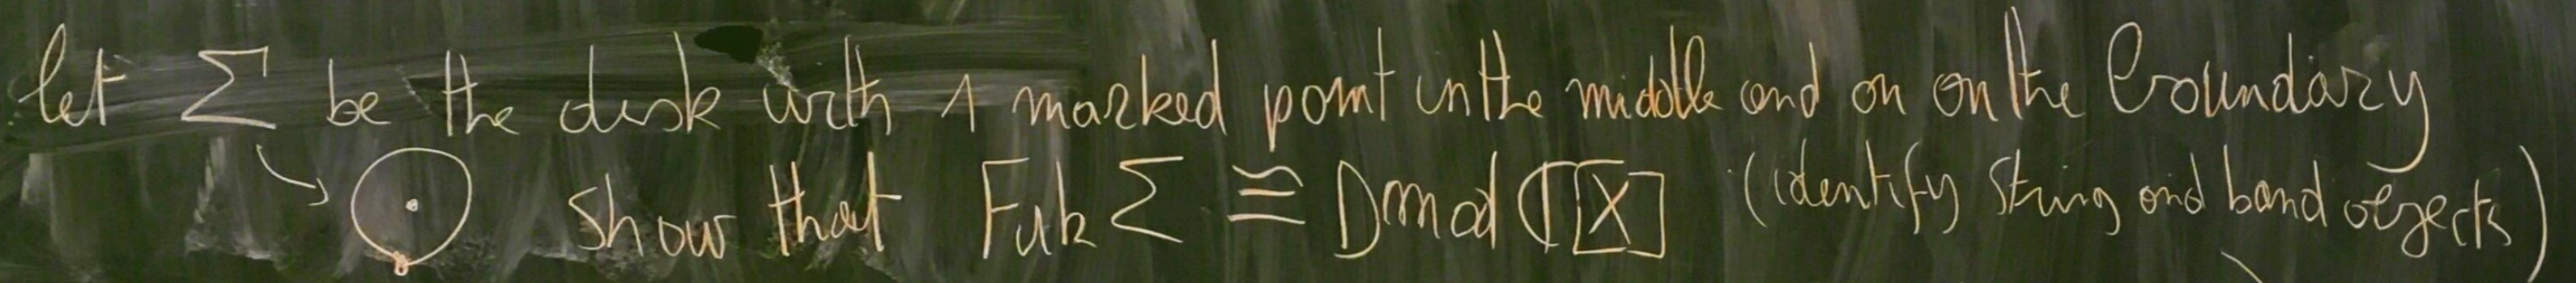 let Σ be the disk with 1 marked point in the middle and on on the boundary
show that Fuk Σ ≅ Dmod ℂ[X] (identify string and band objects)